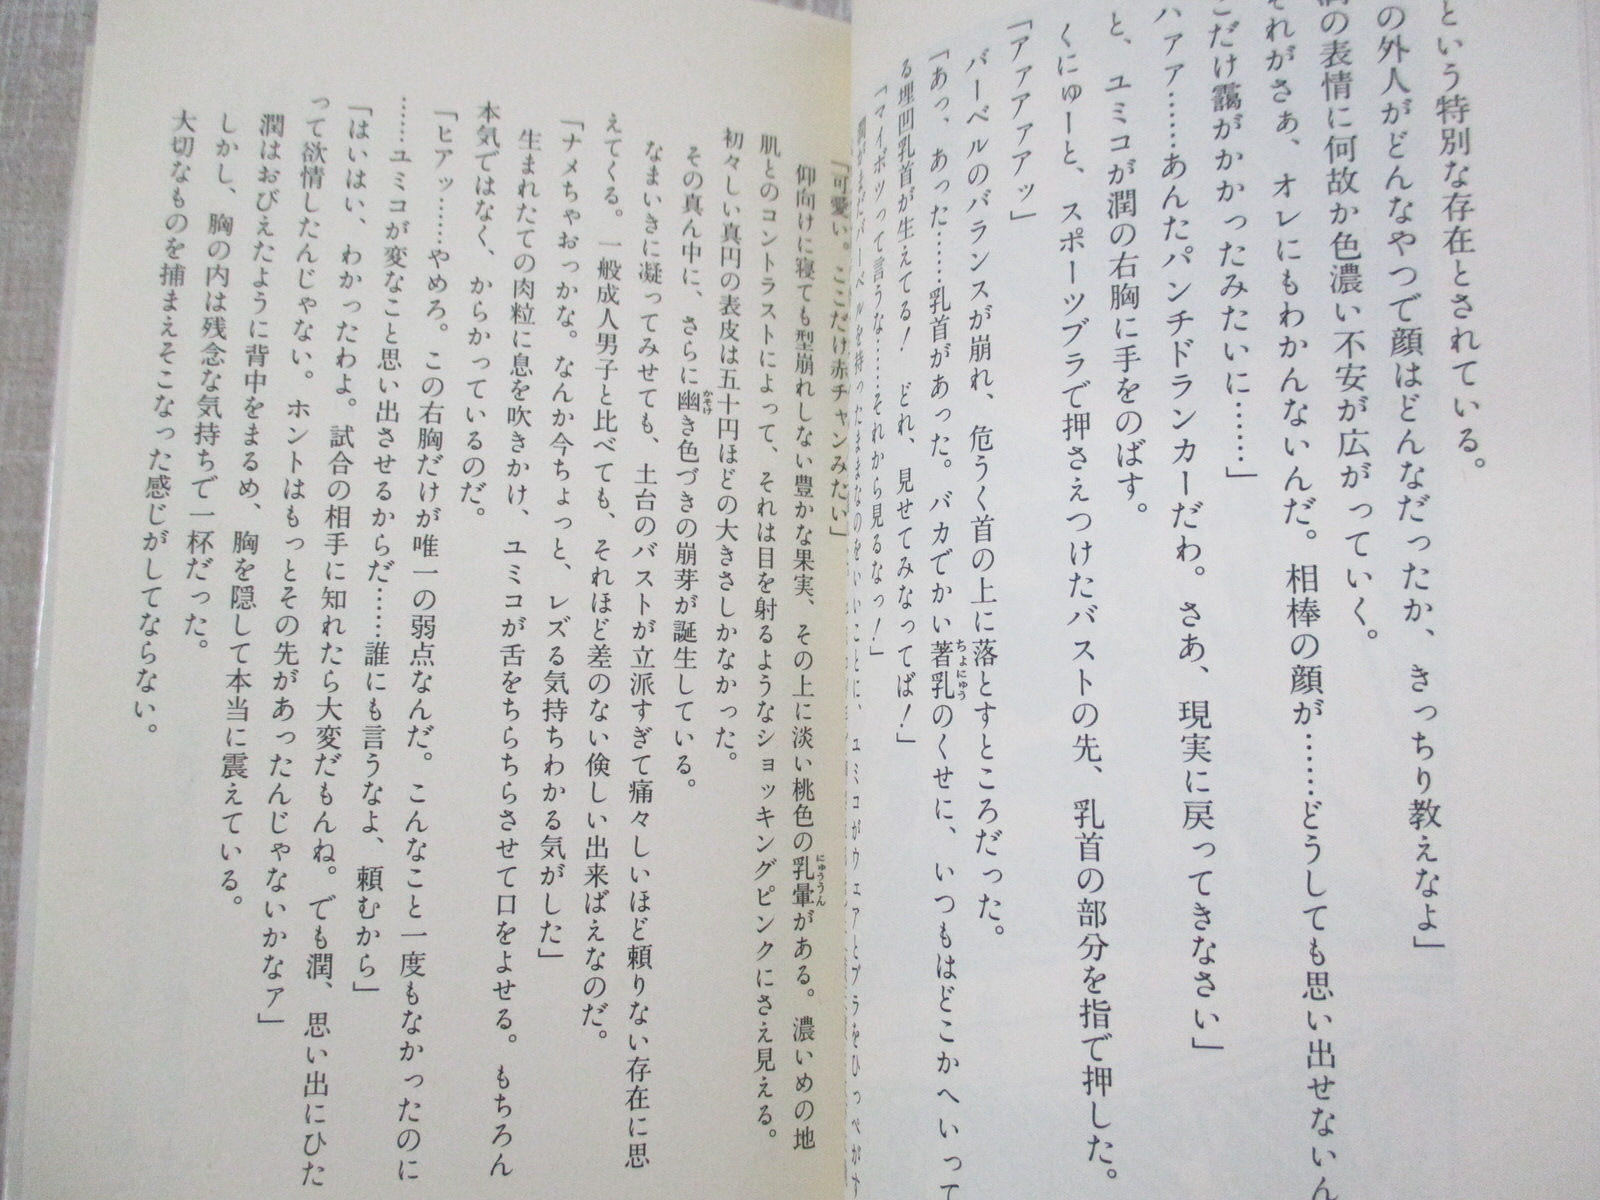 という特別な存在とされている。
の外人がどんなやつで顔はどんなだったか、きっちり教えなよ」
の表情に何故か色濃い不安が広がっていく。
れがさぁ、オレにもわかんないんだ。相棒の顔が……どうしても思い出せないん
だけ靄がかかったみたいに……」
ハァア……あんたパンチドランカーだわ。さあ、現実に戻ってきなさい」
と、ユミコが潤の右胸に手をのばす。
くにゅーと、スポーツブラで押さえつけたバストの先、乳首の部分を指で押した。
「アァアァアッ」
バーベルのバランスが崩れ、危うく首の上に落とすところだった。
「あっ、あった……乳首があった。バカでかい著乳のくせに、いつもはどこかへいって
る埋凹乳首が生えてる！　どれ、見せてみなってば！」
「マイボツって言うな……それから見るなっ！」
潤がまだバーベルを持ったままなのをいいことに、ユミコがウェアとブラをひっぺがす
「可愛い。ここだけ赤チャンみたい」
仰向けに寝ても型崩れしない豊かな果実、その上に淡い桃色の乳暈がある。濃いめの地
肌とのコントラストによって、それは目を射るようなショッキングピンクにさえ見える。
初々しい真円の表皮は五十円ほどの大きさしかなかった。
その真ん中に、さらに幽き色づきの崩芽が誕生している。
なまいきに凝ってみせても、土台のバストが立派すぎて痛々しいほど頼りない存在に思
えてくる。一般成人男子と比べても、それほど差のない倹しい出来ばえなのだ。
「ナメちゃおっかな。なんか今ちょっと、レズる気持ちわかる気がした」
生まれたての肉粒に息を吹きかけ、ユミコが舌をちらちらさせて口をよせる。もちろん
本気ではなく、からかっているのだ。
「ヒアッ……やめろ。この右胸だけが唯一の弱点なんだ。こんなこと一度もなかったのに
……ユミコが変なこと思い出させるからだ……誰にも言うなよ、頼むから」
「はいはい、わかったわよ。試合の相手に知れたら大変だもんね。でも潤、思い出にひた
って欲情したんじゃない。ホントはもっとその先があったんじゃないかなァ」
潤はおびえたように背中をまるめ、胸を隠して本当に震えている。
しかし、胸の内は残念な気持ちで一杯だった。
大切なものを捕まえそこなった感じがしてならない。
かそけ
にゅううん
ちょにゅう